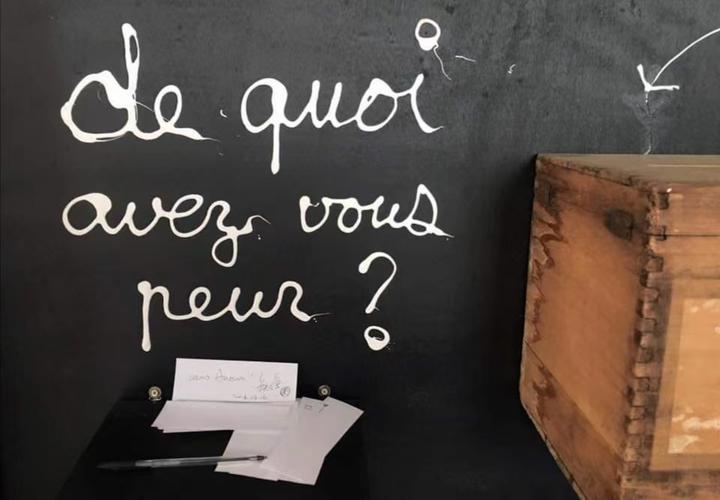 de quoi
avez vous
peur ?